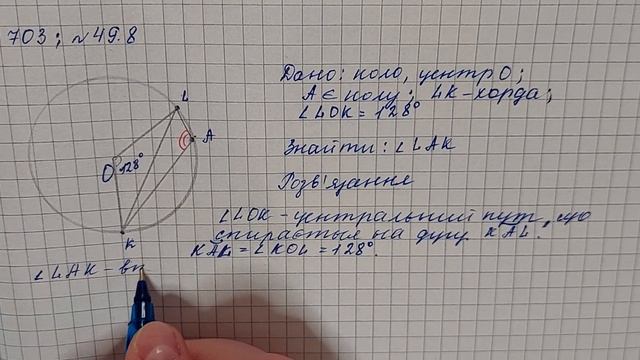 703; №49.8
L
A
O 128°
K
Дано: коло, центр O;
A є колу; LK-хорда;
∠LOK = 128°
Знайти: ∠LAK
Розв'язання
∠LOK - центральний кут, що
спирається на дугу KAL.
KAL = ∠KOL = 128°.
∠LAK - вп